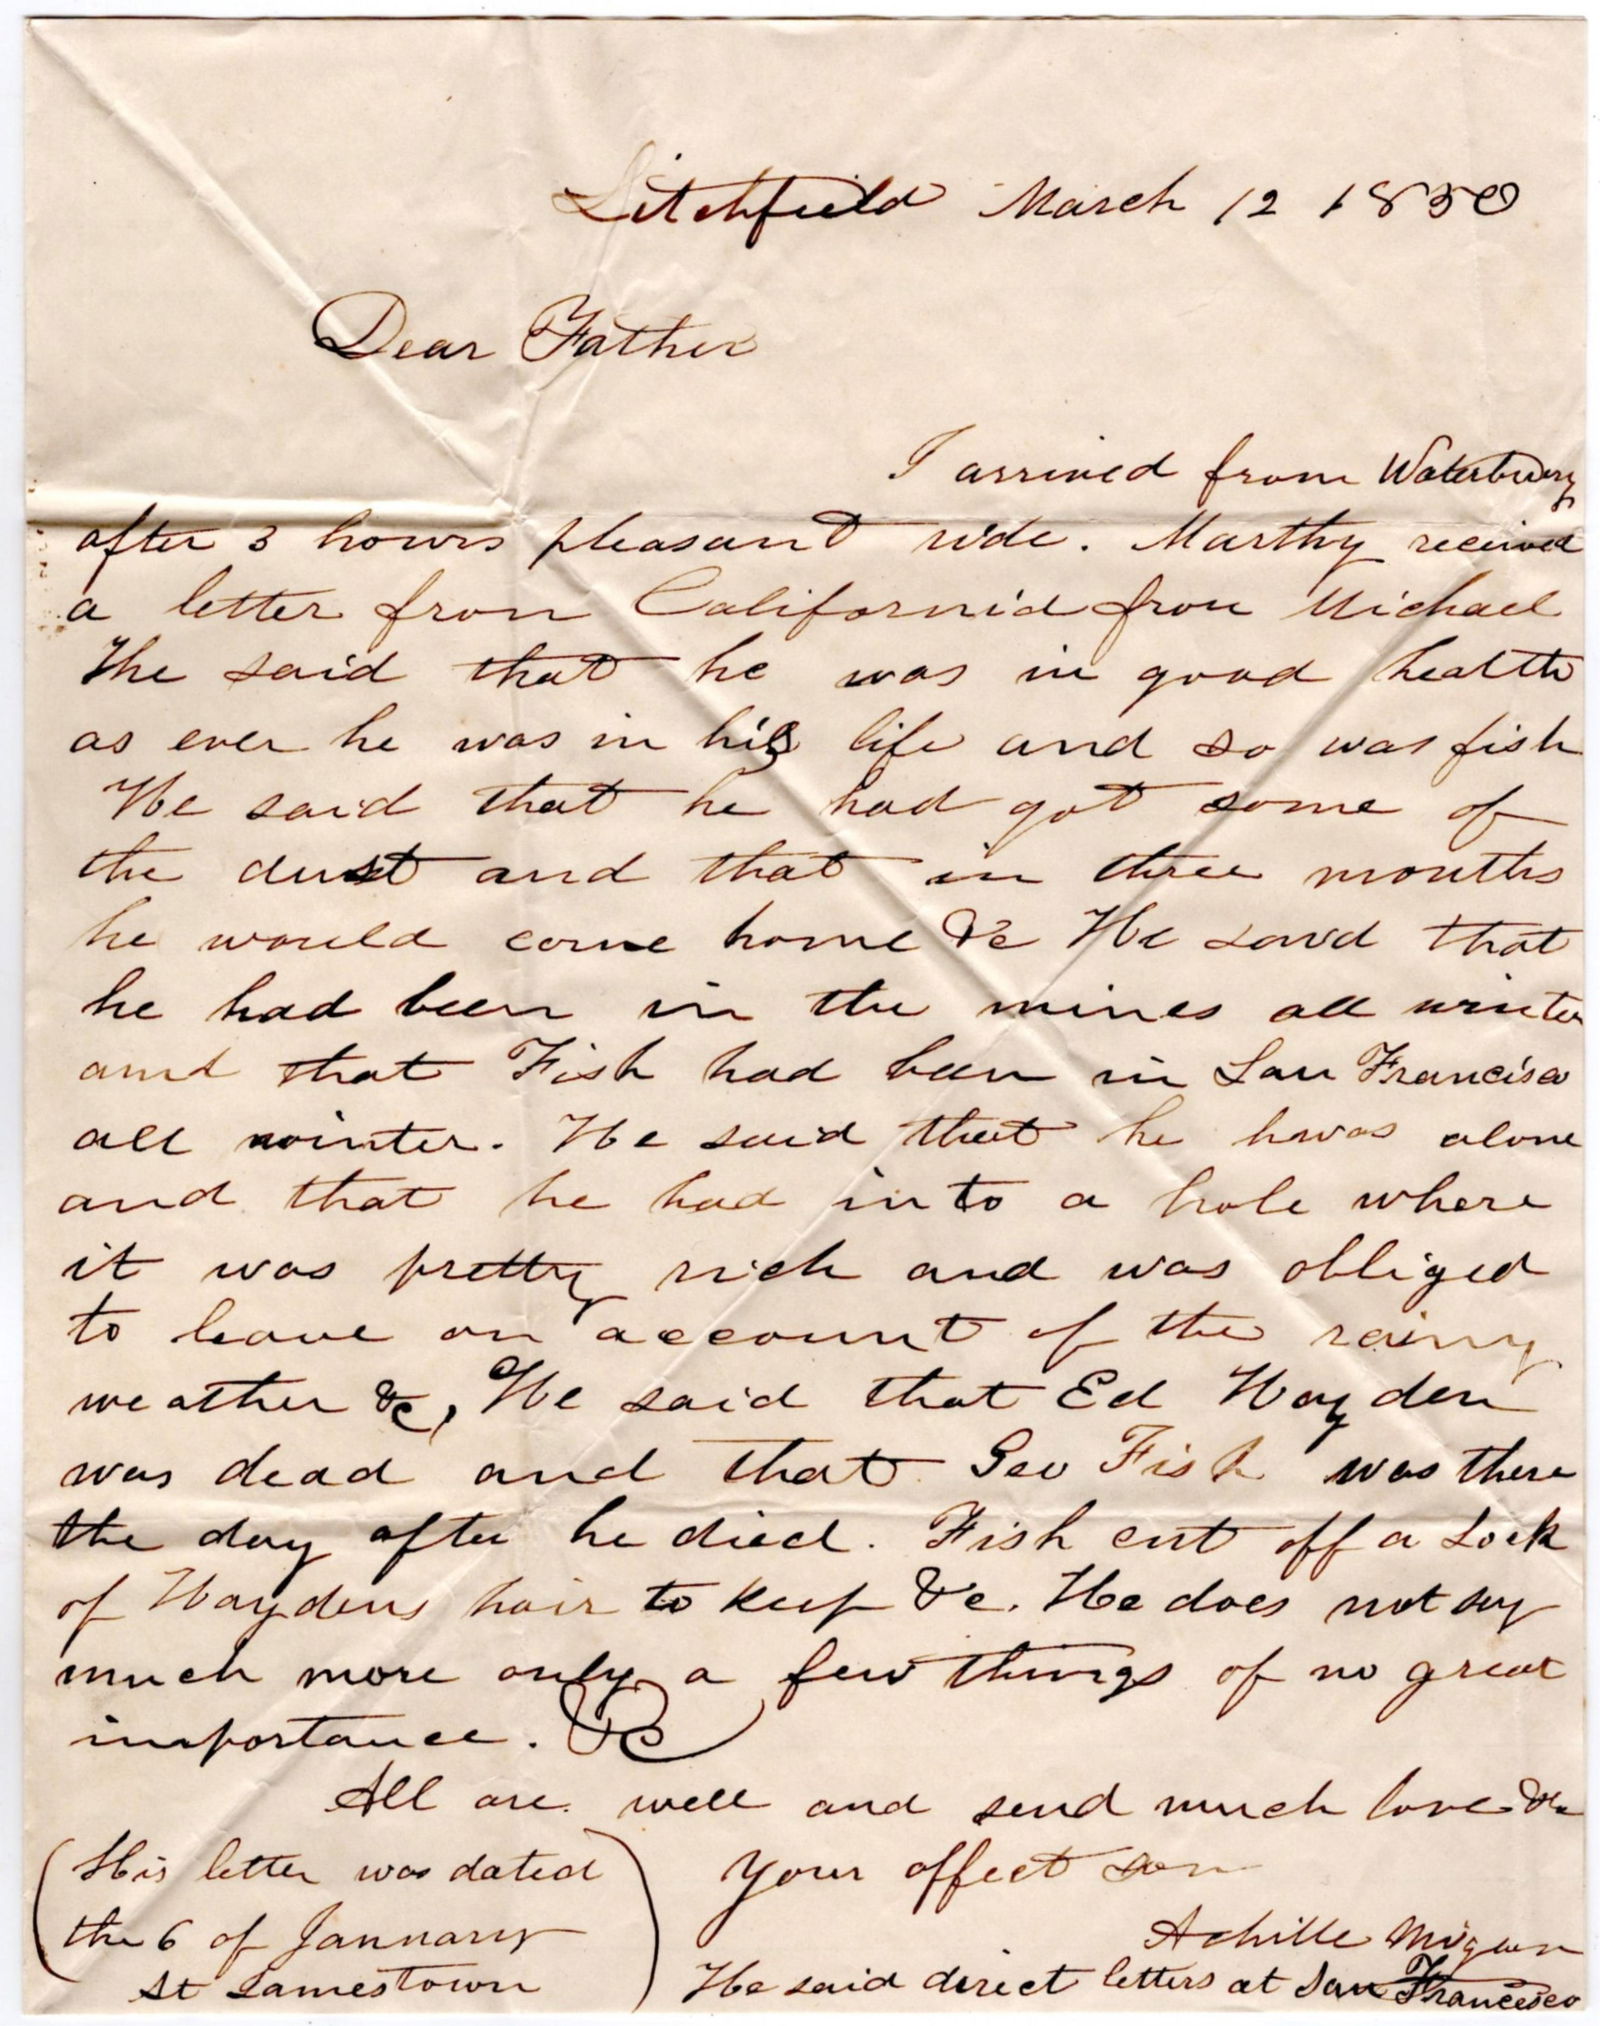 Litchfield March 12 1850
Dear Father
I arrived from Waterbury
after 3 hours pleasant ride. Marthy received
a letter from California from Michael
The said that he was in good health
as ever he was in his life and so was fish
He said that he had got some of
the dust and that in three months
he would come home &c He said that
he had been in the mines all winter
and that Fish had been in San Francisco
all winter. He said that he hwas alone
and that he had in to a hole where
it was pretty rich and was obliged
to leave on account of the rainy
weather &c, He said that Ed Hayden
was dead and that Geo Fish was there
the day after he died. Fish cut off a Lock
of Haydens hair to keep &c. He does not say
much more only a few things of no great
importance. &c
All are well and send much love &c
(His letter was dated
the 6 of January
St Jamestown)
Your affect son
Achille
He said direct letters at San Francisco